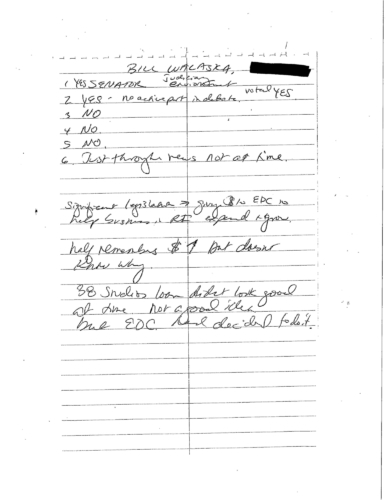 BILL WALASKA,
Judiciary
1 YES SENATOR environment
2 YES - no active part in debate, voted YES
3 NO
4 NO.
5 NO.
6. Just through news not at time.
Significant legislation → giving $ to EDC to
help business in RI expand & grow.
help remembers $ ↑ but doesnt
know why
38 Studios loan didnt look good
at time not a good idea
but EDC had decided to do it.